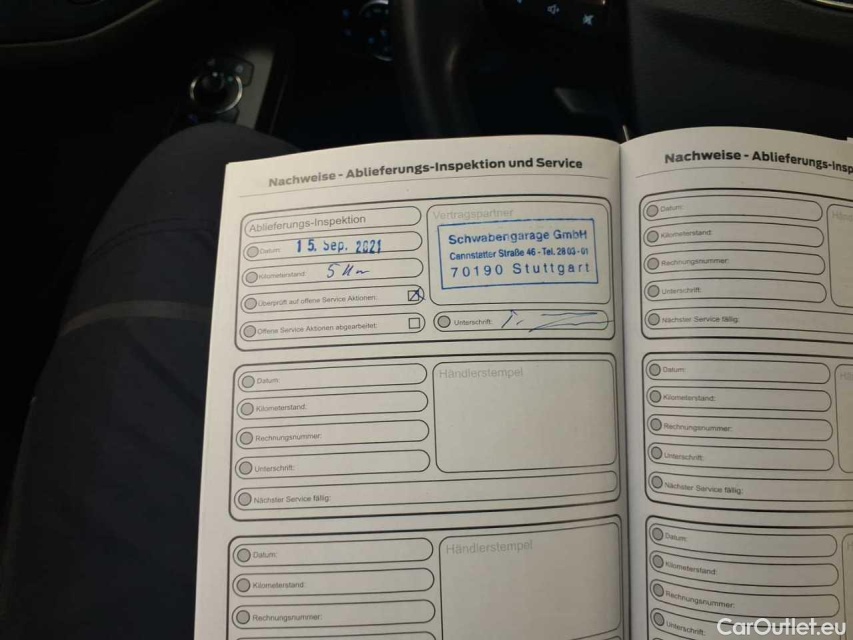 Nachweise - Ablieferungs-Inspektion und Service
Ablieferungs-Inspektion
Datum: 15. Sep. 2021
Kilometerstand: 5 Km
Überprüft auf offene Service Aktionen:
Offene Service Aktionen abgearbeitet:
Vertragspartner
Schwabengarage GmbH
Cannstatter Straße 46 - Tel. 28 03-01
70190 Stuttgart
Unterschrift:
Datum:
Kilometerstand:
Rechnungsnummer:
Unterschrift:
Nächster Service fällig:
Händlerstempel
Datum:
Kilometerstand:
Rechnungsnummer:
Händlerstempel
Nachweise - Ablieferungs-Insp
Datum:
Kilometerstand:
Rechnungsnummer:
Unterschrift:
Nächster Service fällig:
Datum:
Kilometerstand:
Rechnungsnummer:
Unterschrift:
Nächster Service fällig:
Datum:
Kilometerstand:
Rechnungsnummer:
Unterschrift:
CarOutlet.eu